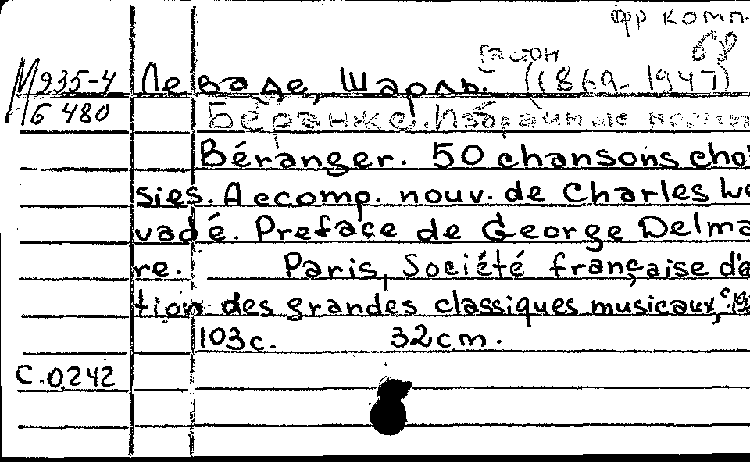 фр комп
68
Гастон
М 935-4 Ле ваде, Шарль. (1869-1947)
Б 480 Беранже. Избранные песни
Béranger. 50 chansons choi
sies. Accomp. nouv. de Charles Le
vadé. Preface de George Delma
re. Paris, Société française d'é
tion des grandes classiques musicaux, c.19
103c. 32cm.
C.0242